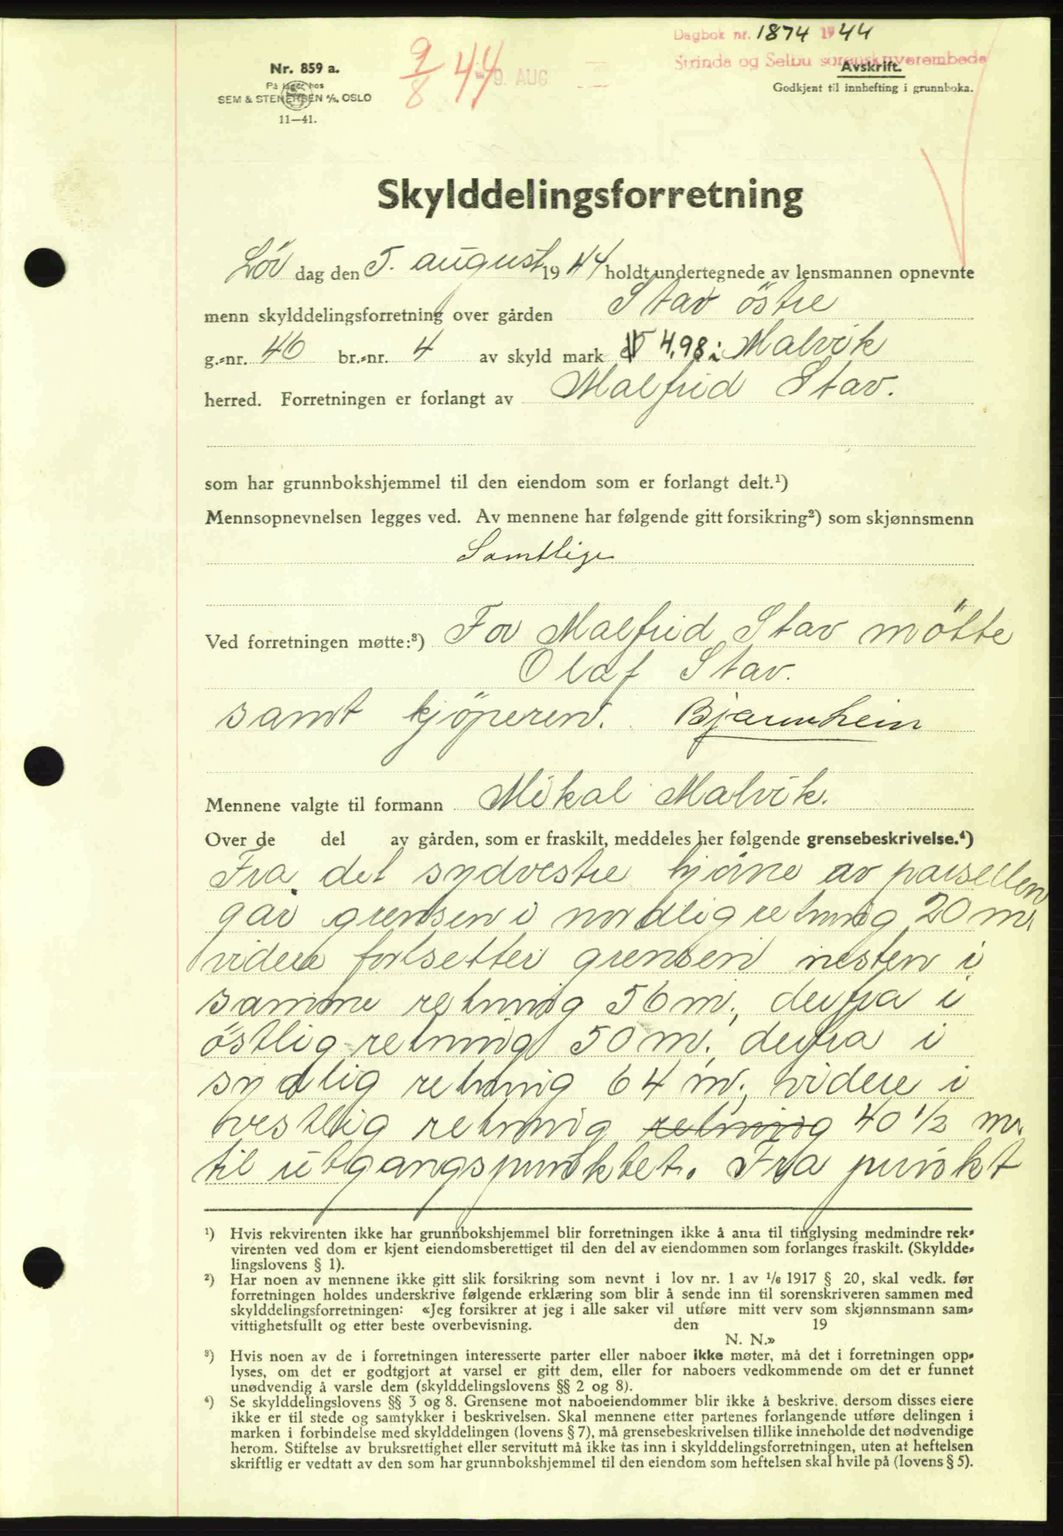 Dagbok nr. 1874 1944
Strinda og Selbu sorenskriverembede
Nr. 859 a.
På lager hos
SEM & STENERSEN A/S, OSLO
11—41.
9/8 44
9. AUG
Avskrift.
Godkjent til innhefting i grunnboka.
Skylddelingsforretning
Lör dag den 5. august 1944 holdt undertegnede av lensmannen opnevnte
menn skylddelingsforretning over gården Stav östre
g.-nr. 46 br.-nr. 4 av skyld mark 4,98 i Malvik
herred. Forretningen er forlangt av Malfrid Stav.
som har grunnbokshjemmel til den eiendom som er forlangt delt.¹)
Mennsopnevnelsen legges ved. Av mennene har følgende gitt forsikring²) som skjønnsmenn
Samtlige
Ved forretningen møtte:³) For Malfrid Stav mötte
Olaf Stav.
samt kjöperen. Bjarne Lein
Mennene valgte til formann Mikal Malvik.
Over de del av gården, som er fraskilt, meddeles her følgende grensebeskrivelse.⁴)
Fra det sydvestre hjörne av parsellen
går grensen i nordlig retning 20 m.
videre fortsetter grensen nesten i
samme retning 56 m., derfra i
östlig retning 50 m., derfra i
sydlig retning 64 m., videre i
vestlig retning retning 40 1/2 m.
til utgangspunktet. Fra punkt
¹) Hvis rekvirenten ikke har grunnbokshjemmel blir forretningen ikke å anta til tinglysing medmindre rek-
virenten ved dom er kjent eiendomsberettiget til den del av eiendommen som forlanges fraskilt. (Skyldde-
lingslovens § 1).
²) Har noen av mennene ikke gitt slik forsikring som nevnt i lov nr. 1 av 1/6 1917 § 20, skal vedk. før
forretningen holdes underskrive følgende erklæring som blir å sende inn til sorenskriveren sammen med
skylddelingsforretningen: «Jeg forsikrer at jeg i alle saker vil utføre mitt verv som skjønnsmann sam-
vittighetsfullt og etter beste overbevisning. den 19
N. N.»
³) Hvis noen av de i forretningen interesserte parter eller naboer ikke møter, må det i forretningen opp-
lyses, om det er godtgjort at varsel er gitt dem, eller for naboers vedkommende om det er funnet
unødvendig å varsle dem (skylddelingslovens §§ 2 og 8).
⁴) Se skylddelingslovens §§ 3 og 8. Grensene mot naboeiendommer blir ikke å beskrive, dersom disses eiere
ikke er til stede og samtykker i beskrivelsen. Skal mennene etter partenes forlangende utføre delingen i
marken i forbindelse med skylddelingen (lovens § 7), må grensebeskrivelsen tillike inneholde det nødvendige
herom. Stiftelse av bruksrettighet eller servitutt må ikke tas inn i skylddelingsforretningen, uten at heftelsen
skriftlig er vedtatt av den som har grunnbokshjemmel til den eiendom som heftelsen skal hvile på (lovens § 5).